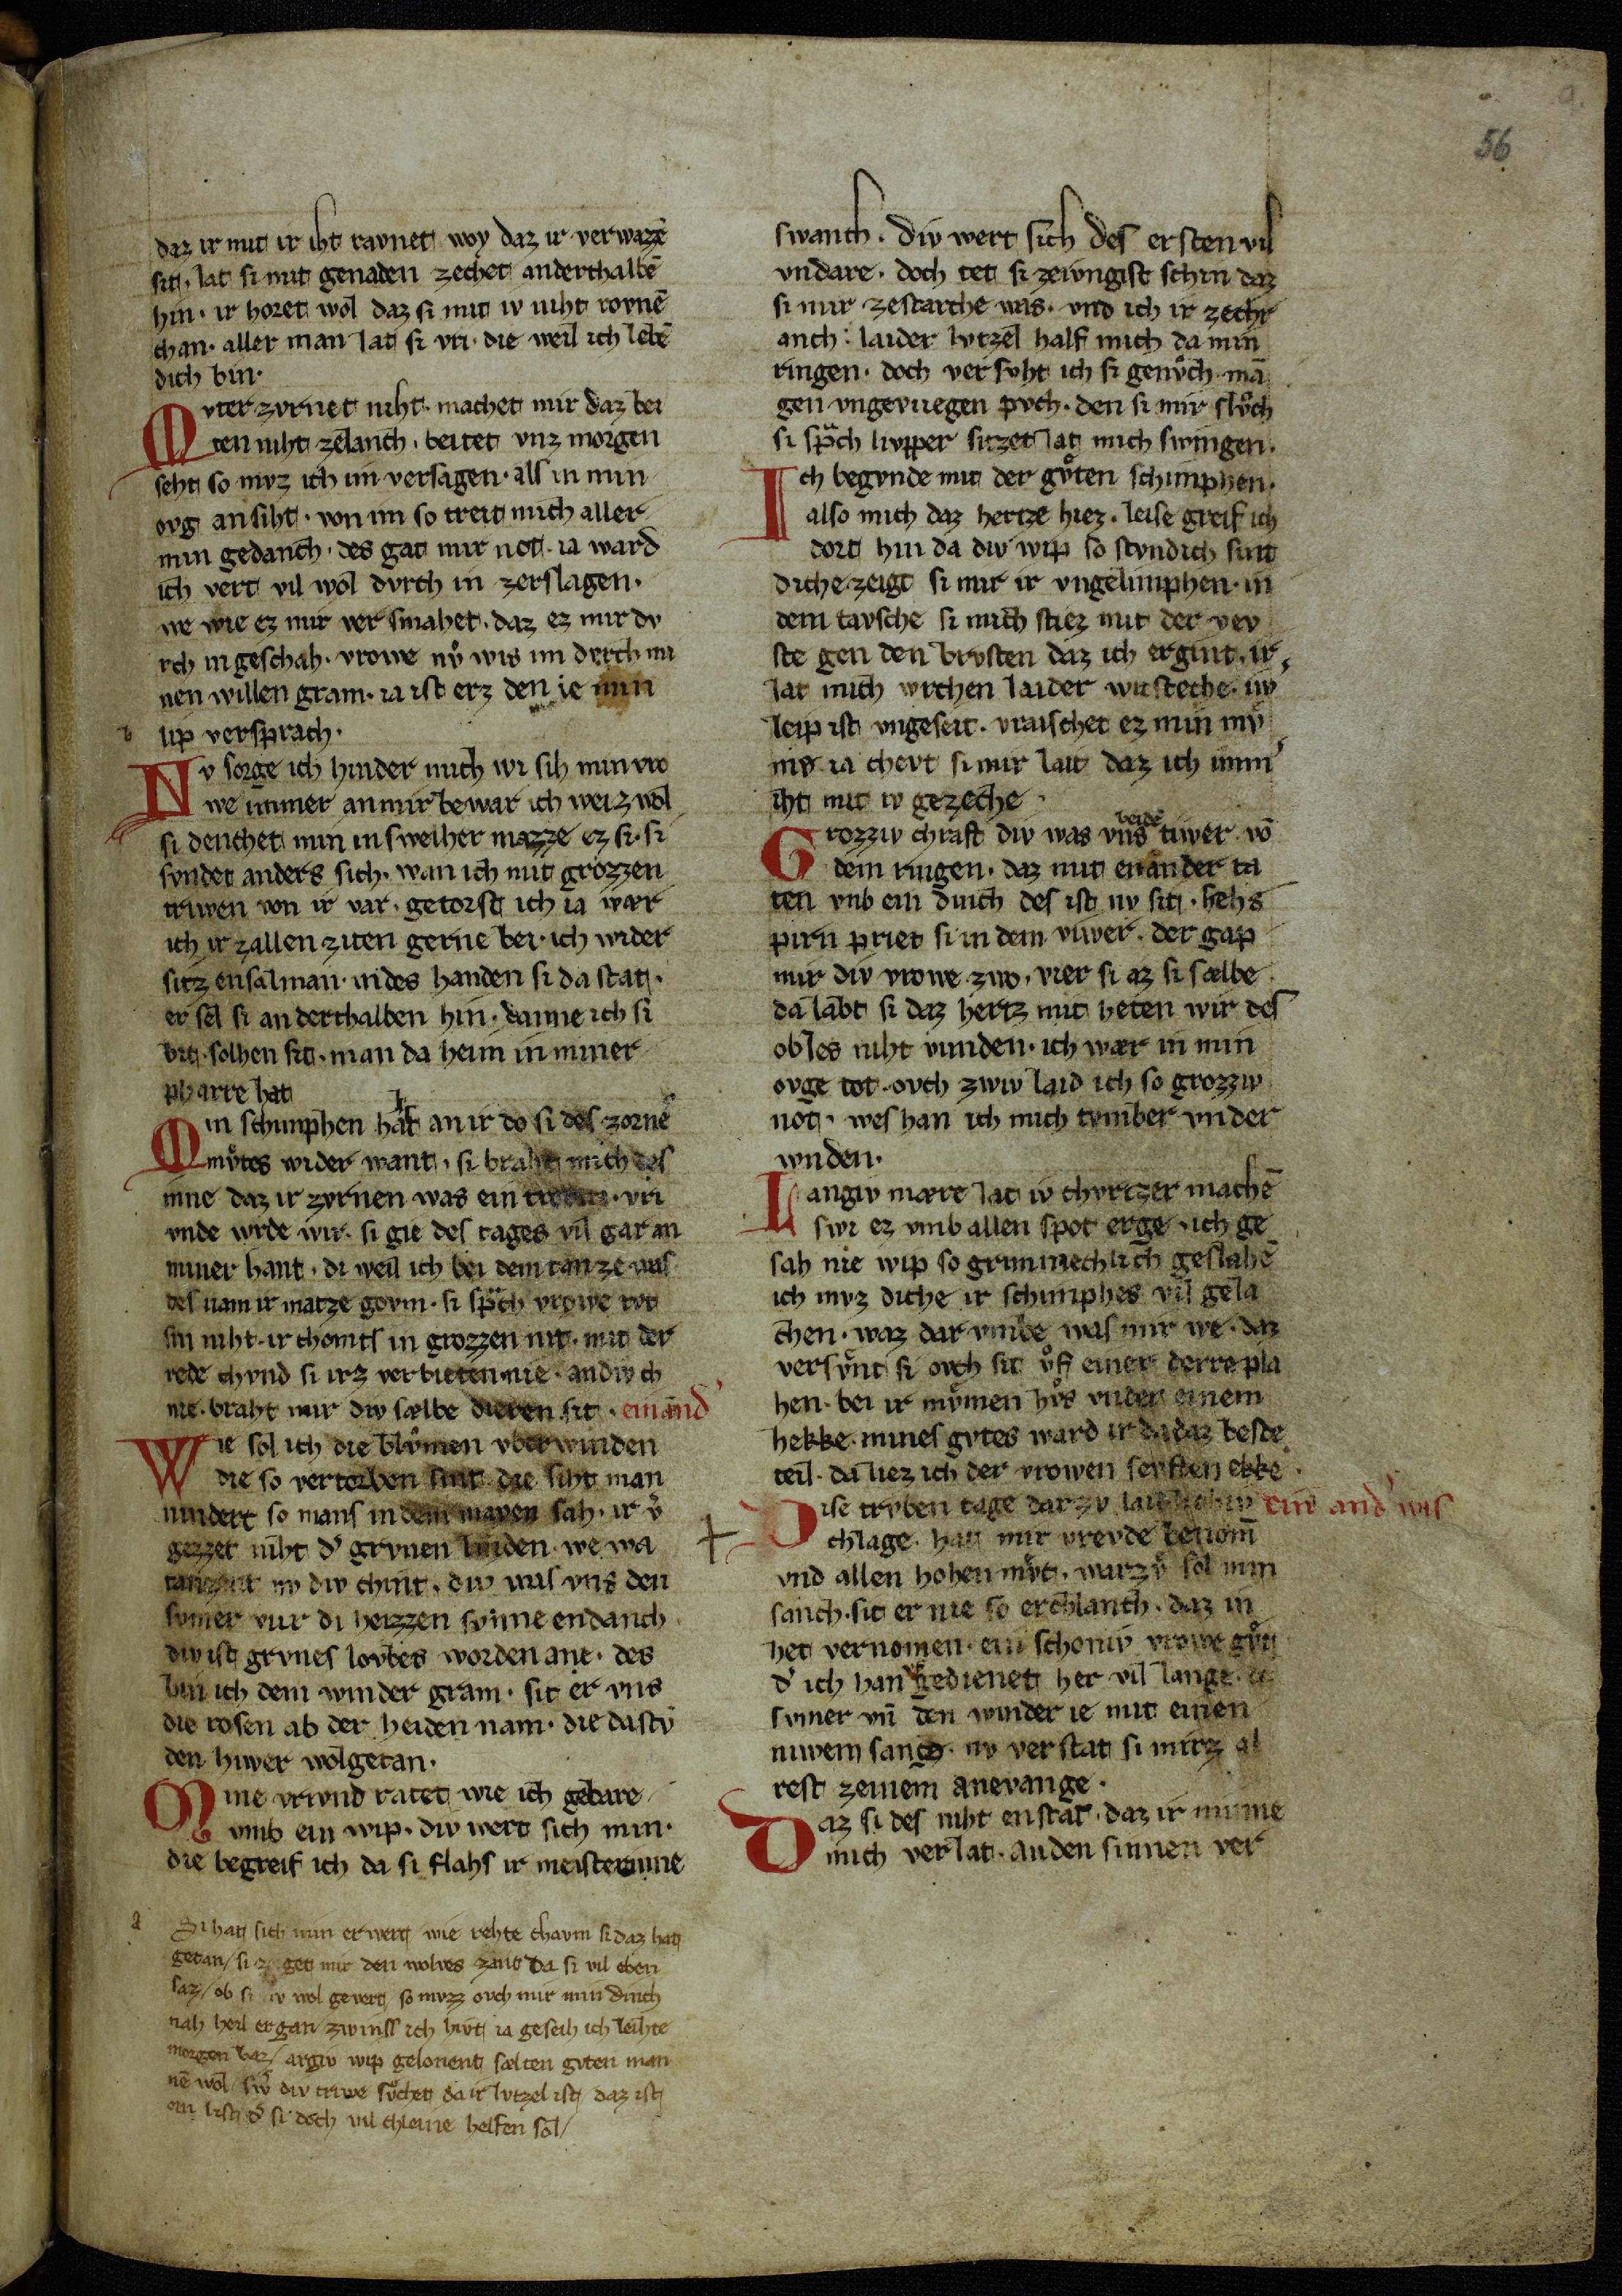 56
daz ir mit ir iht raunet woy daz ir verwazē
sit. lat si mit genaden zechet anderthalbē
hin. ir horet wol daz si mit iv niht rovnē
chan. aller man lat si vri. die weil ich lebē
dich bin.
Mvter zvrnet niht. machet mir daz bei
ten niht zelanch. beitet vnz morgen
seht so mvz ich im versagen. als in min
ovg ansiht. von im so treit mich aller
min gedanch. des gat mir not. ia ward
ich vert vil wol dvrch in zerslagen.
we wie ez mir versmahet. daz ez mir dv
rch in geschah. vrowe nv̊ wis im dvrch mi
nen willen gram. ia ist erz den ie min
lip versprach.
b
Nv sorge ich hinder mich wi sih min vro
we immer an mir bewar ich weiz wol
si denchet min in sweiher mazze ez si. si
svndet anders sich. wan ich mit grozzen
triwen von ir var. getorst ich ia wær
ich ir zallen ziten gerne bei. ich wider
sitz ensalman. in des handen si da stat.
er sel si anderthalben hin. danne ich si
bit. solhen sit. man da heim in miner
pharre hat
Min schimphen half an ir do si des zornē
mv̊tes wider want. si braht mich des
inne daz ir zvrnen was ein. vri
vnde wrde wir. si gie des tages vil gar an
miner hant. di weil ich bei dem tanze was
des nam ir matze govm. si sprach vrowe tvt
sin niht. ir chomts in grozzen nit. mit der
rede chvnd si irz verbieten nie. an div ch
nie. braht mir div sælbe dieren sit. ein and̾
Wie sol ich die blv̊men vberwinden
die so verterben sint die siht man
nindert so mans in dem mayen sah. ir v̾
gezzet niht d̾ grvnen linden. we wa
tanzent nv div chint. div was vns den
svmer vur di heizzen svnne endanch.
div ist grvnes lovbes worden ane. des
bin ich dem winder gram. sit er vns
die rosen ab der heiden nam. die da stv̊
den hiwer wolgetan.
Mine vrivnd ratet wie ich gebare
vmb ein wip. div wert sich min.
die begreif ich da si flahs ir meisterinne
a
Si hat sich min erwert wie rehte chavm si daz hat
getan/ si z get mir den wolves zant da si vil eben
saz/ ob si iv wol gevert so mvzz ovch mir min dinch
nah heil ergan/ zwinss ich hivt ia geseih ich leihte
morgen baz/ argiv wip gelonent sælten gvten man
nē wol/ sw̾ div triwe sv̊chet da ir lvtzel ist daz ist
ein list d̾ si doch vil chleine helfen sol/
swanch. Div wert sich des ersten vil
vndare. doch tet si zeivngist schin daz
si mir zestarche was. vnd ich ir zechr
anch: laider lvtzel half mich da min
ringen. doch versvht ich si genv̊ch. mā
gen vngevuegen pvch. den si mir slv̊ch
si sprach livpper sitzet lat mich swingen.
Ich begvnde mit der gv̊ten schimphen.
also mich daz hertze hiez. leise greif ich
dort hin da div wip so stvndich sint
diche zeigt si mir ir vngelimphen. in
dem tavsche si mich stiez mit der vev
ste gen den brvsten daz ich ergint. ir
lat mich wrchen laider wisteche. iw
leip ist vngeseit. vraischet ez min mv̊
me ia chevt si mir lait daz ich imm̾
iht mit iv gezeche.
Grozziv chraft div was vns beide tiwer. vō
dem ringen. daz mit enander ta
ten vnb ein dinch des ist nv sit. sehs
pirn priet si in dem viwer. der gap
mir div vrowe zwo. vier si az si sælbe
da labt si daz hertz mit heten wir des
obles niht vunden. ich wær in min
ovge tot. ovch zwiv laid ich so grozziv
not. wes han ich mich tvmber vnder
wnden.
Langiv mære lat iv chvrtzer machē
swi ez vmb allen spot erge. ich ge
sah nie wip so grimmechlich geslahē
ich mvz diche ir schimphes vil gela
chen. waz dar vmbe was mir we. daz
versv̊nt si ovch sit v̊f einer derre pla
hen. bei ir mv̊men hv̊s vnder einem
hekke. mines gvtes ward ir da daz beste
teil. da liez ich der vrowen senften ekke.
Dise trvben tage darzv laidlichiv ein and̾ wis
chlage. hat mir vrevde benom̄
vnd allen hohen mv̊t. warzv̊ sol min
sanch. sit er nie so erchlanch. daz in
het vernomen. ein schoniv vrowe gv̊t
d̾ ich han gedienet her vil lange. ie
svmer vn̄ den winder ie mit einen
niwem sange. nv verstat si mirz al
rest zeinem anevange.
Daz si des niht enstat. daz ir minne
mich verlat. an den sinnen ver